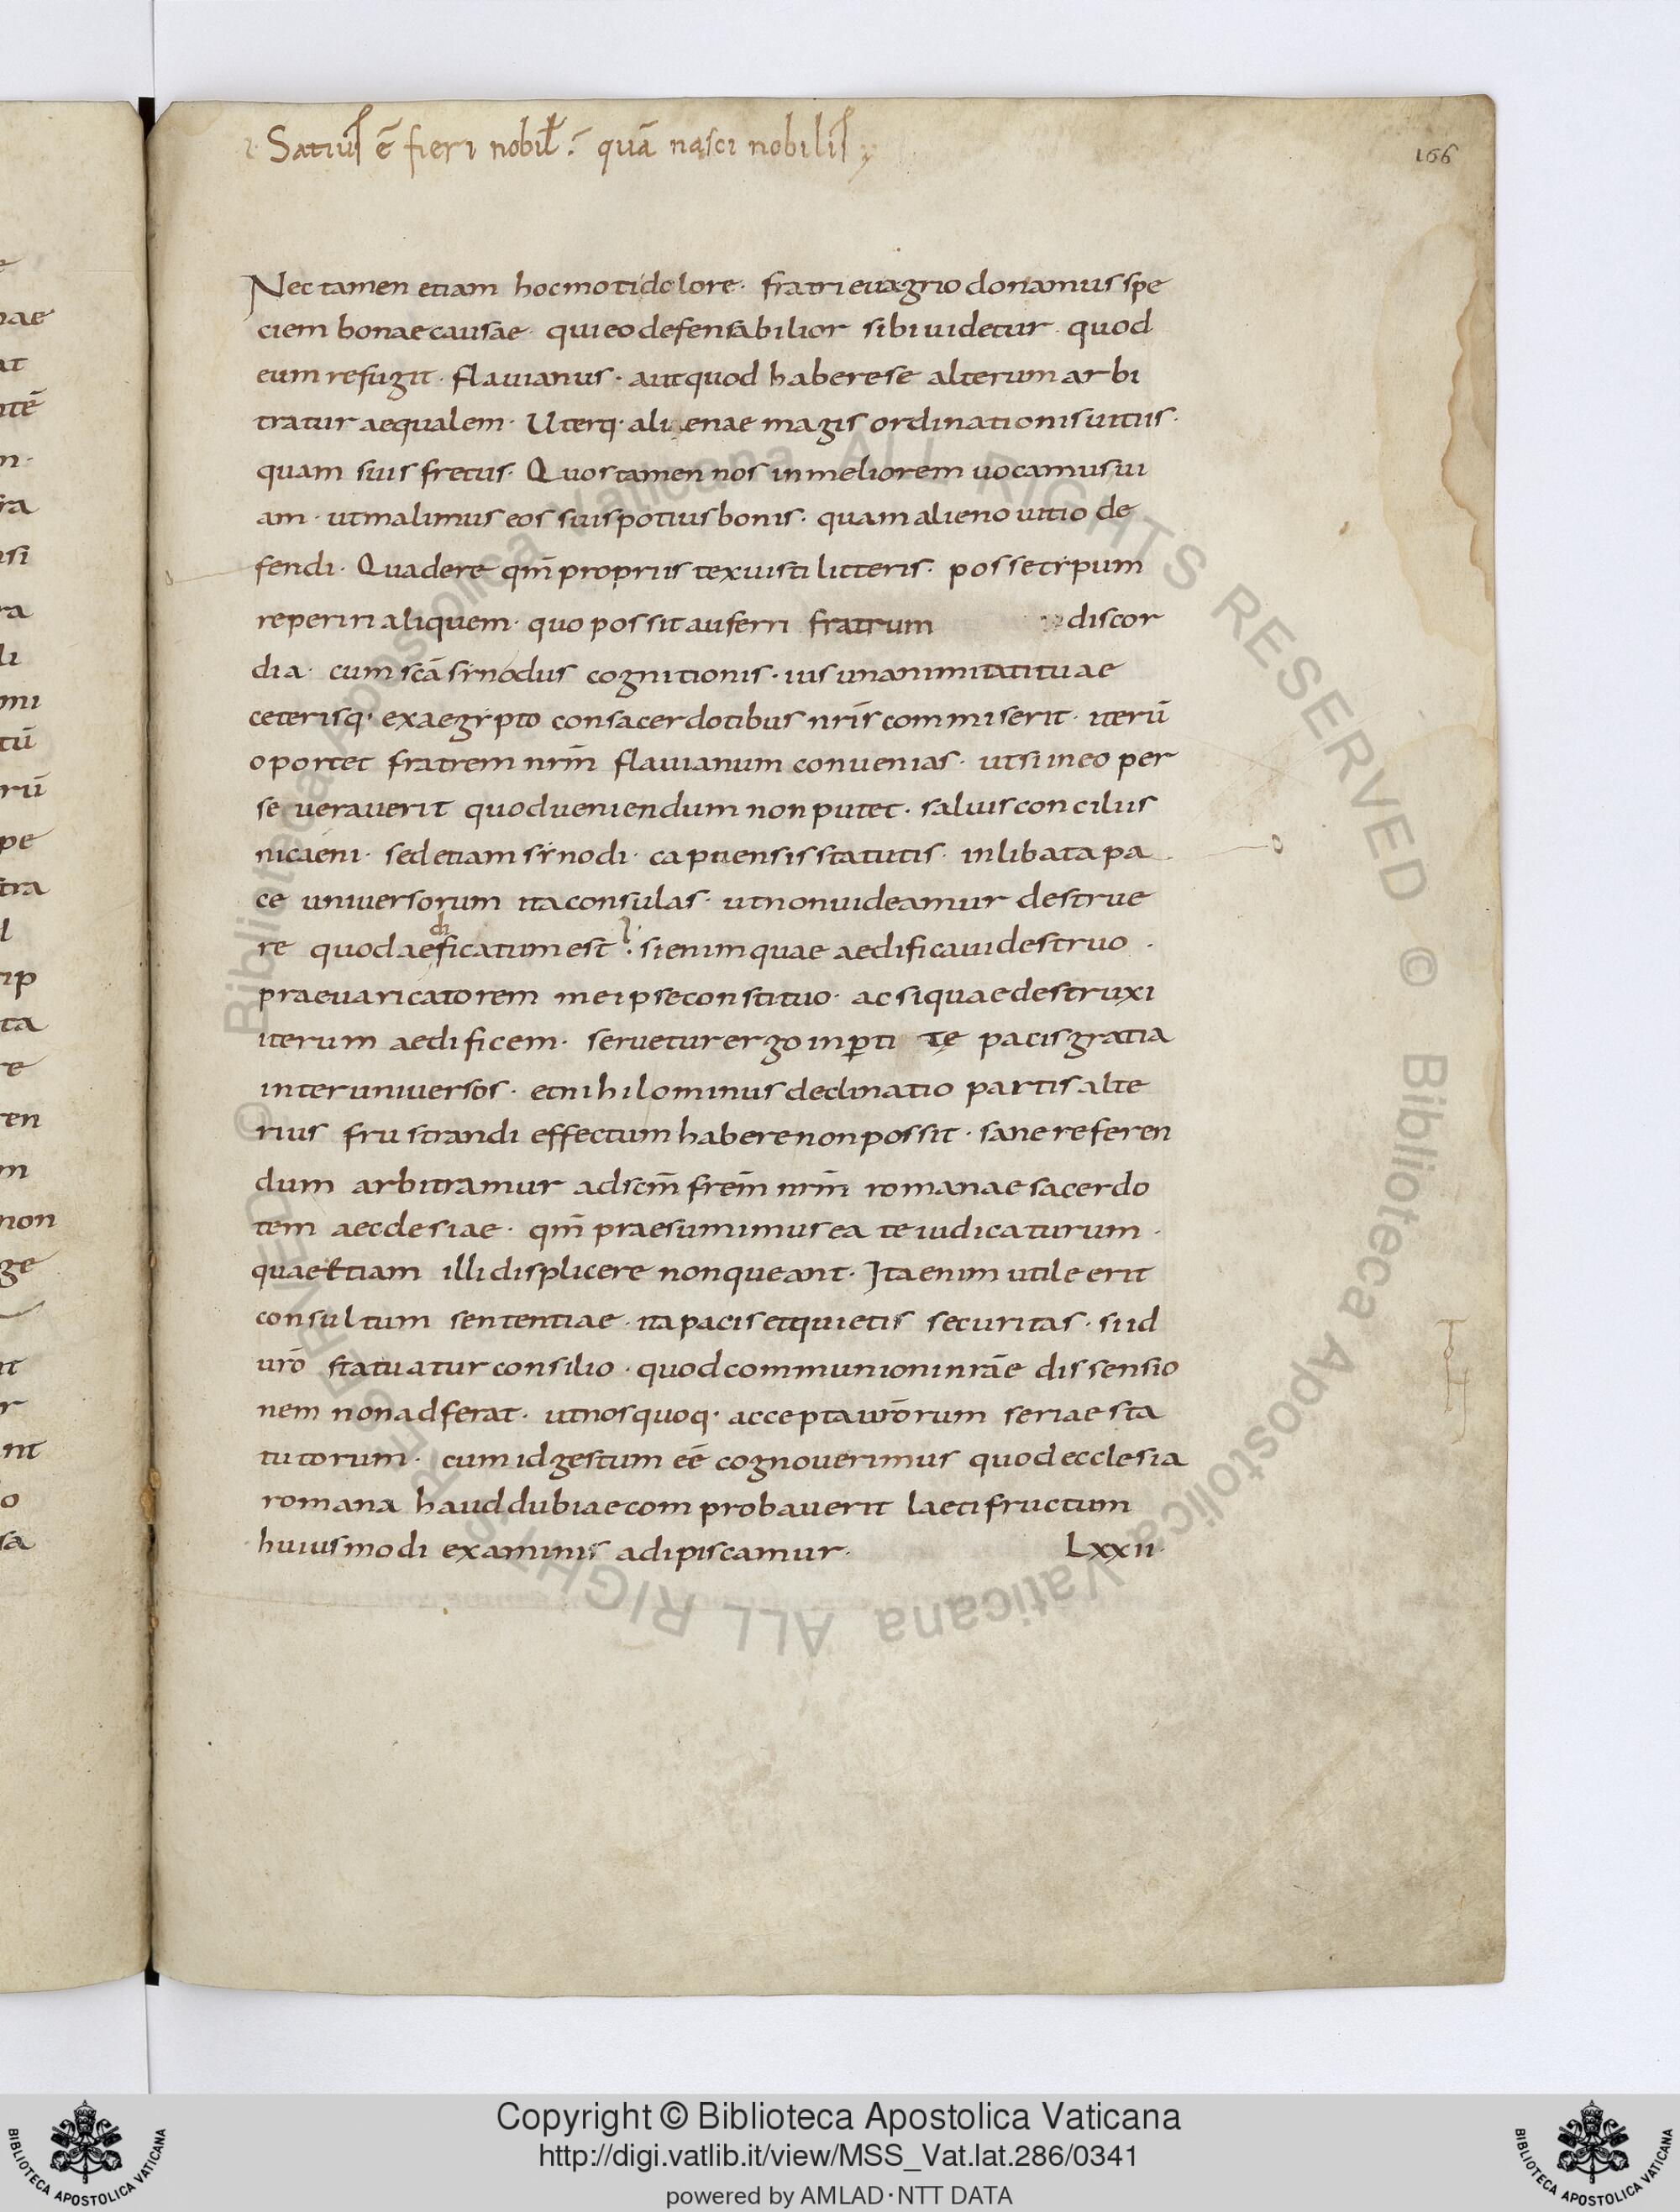 Satius ē fieri nobil. quā nasci nobilis
166
Nec tamen etiam hoc moti dolore· fratri euagrio donamus spe
ciem bonae causae· qui eo defensabilior sibi uidetur· quod
eum refugit· flauianus· aut quod habere se alterum arbi
tratur aequalem· Uterq· alienae magis ordinationis uitiis·
quam suis fretus· Quos tamen nos in meliorem uocamus ui
am· ut malimus eos suis potius bonis· quam alieno uitio de
fendi· Qua de re qm̄ propriis texuisti litteris· posse typum
reperiri aliquem· quo possit auferri fratrum discor
dia· cum scā synodus cognitionis· ius unanimitati tuae
ceterisq· ex aegypto consacerdotibus nr̄is commiserit· iterū
oportet fratrem nrm̄ flauianum conuenias· ut si in eo per
seuerauerit quod ueniendum non putet· saluis conciliis
nicaeni· sed etiam synodi· capuensis statutis· inlibata pa
ce uniuersorum ita consulas· ut non uideamur destrue
re quod aedificatum est· si enim quae aedificaui destruo·
praeuaricatorem me ipse constituo· ac si quae destruxi
iterum aedificem· seruetur ergo inp̄ti te pacis gratia
inter uniuersos· et nihilominus declinatio partis alte
rius frustrandi effectum habere non possit· sane referen
dum arbitramur ad scm̄ frem̄ nrm̄ romanae sacerdo
tem aecclesiae· qm̄ praesumimus ea te iudicaturum·
quae etiam illi displicere non queant· Ita enim utile erit
consultum sententiae· ita pacis et quietis securitas· si id
uro᷃ statuatur consilio· quod communioni nrāe dissensio
nem non adferat· ut nos quoq· accepta uro᷃rum seriae sta
tutorum· cum id gestum eē cognouerimus quod ecclesia
romana haud dubiae comprobauerit laeti fructum
huiusmodi examinis adipiscamur·
Lxxii·
© Biblioteca Apostolica Vaticana ALL RIGHTS RESERVED © Biblioteca Apostolica Vaticana ALL RIGHTS RESERVED
Copyright © Biblioteca Apostolica Vaticana
http://digi.vatlib.it/view/MSS_Vat.lat.286/0341
powered by AMLAD·NTT DATA
BIBLIOTECA APOSTOLICA VATICANA
BIBLIOTECA APOSTOLICA VATICANA